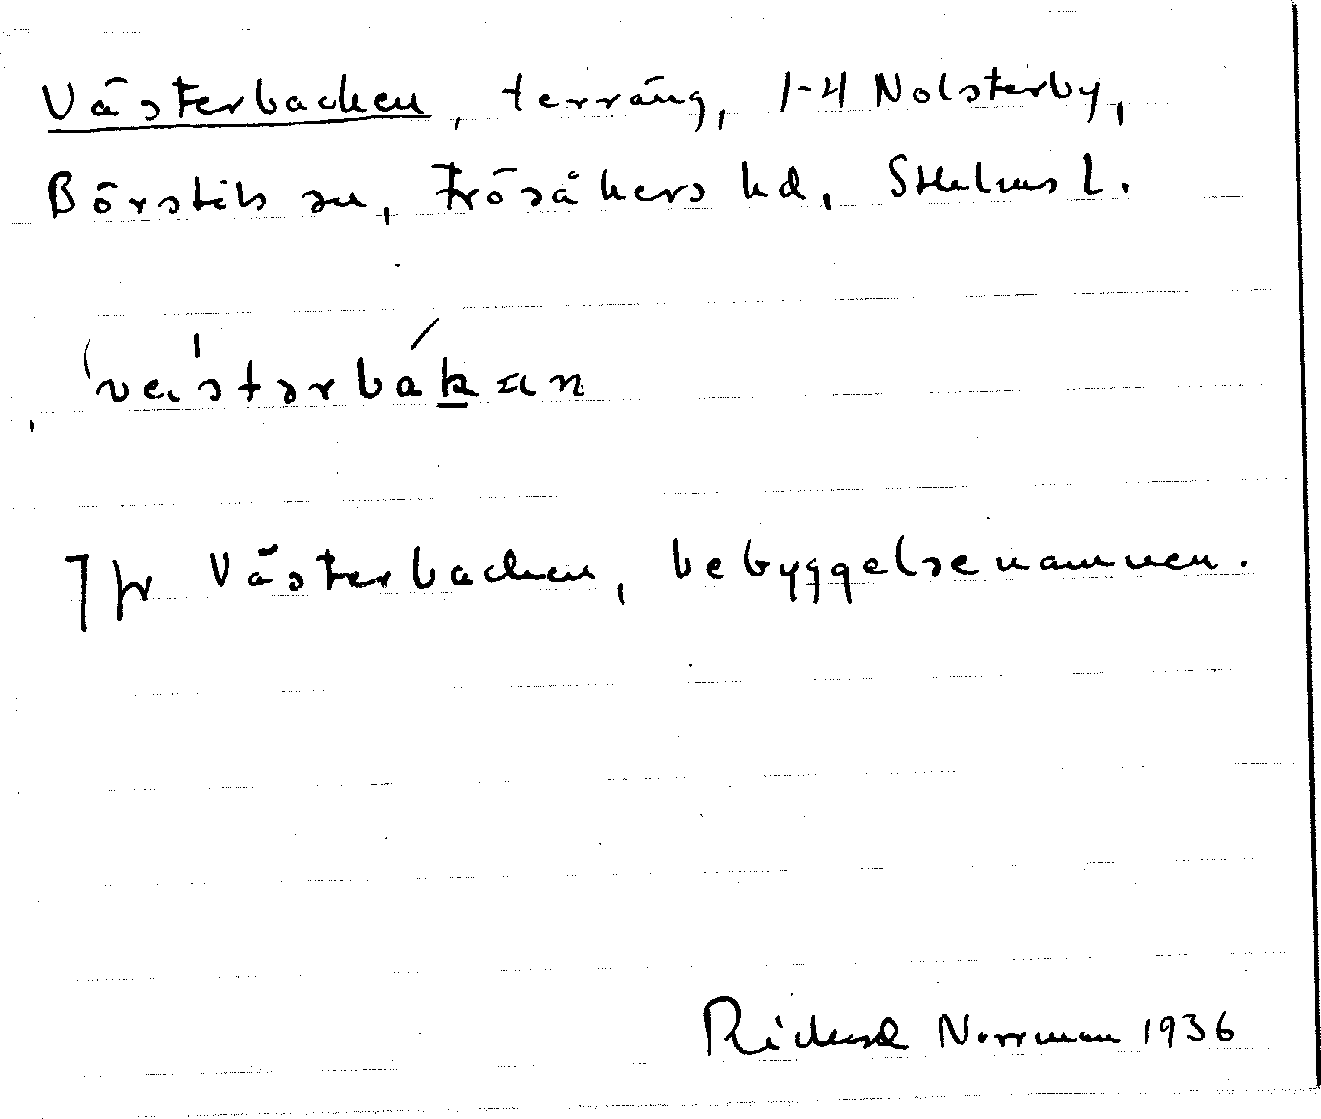 Västerbacken, terräng, 1-4 Nolsterby,
Börstils sn, Frösåkers hd, Sthlms l.
Jfr Västerbacken, bebyggelsenamnen.
Rickard Norrman 1936